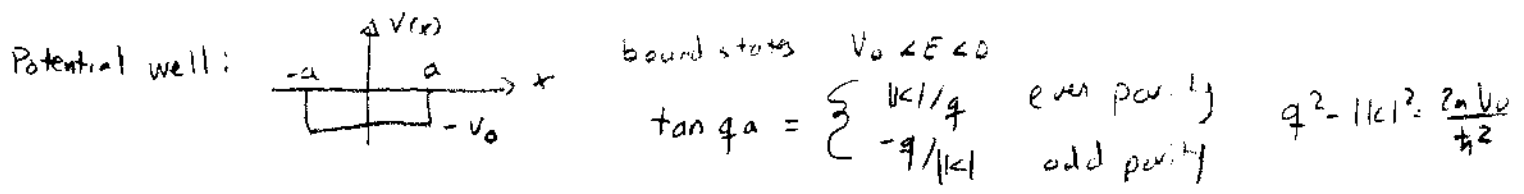 Potential well: V(x) -a a x - V₀ bound states V₀ < E < 0
tan qa = { |k|/q even parity
-q/|k| odd parity
q² - |k|² = 2mV₀/ħ²